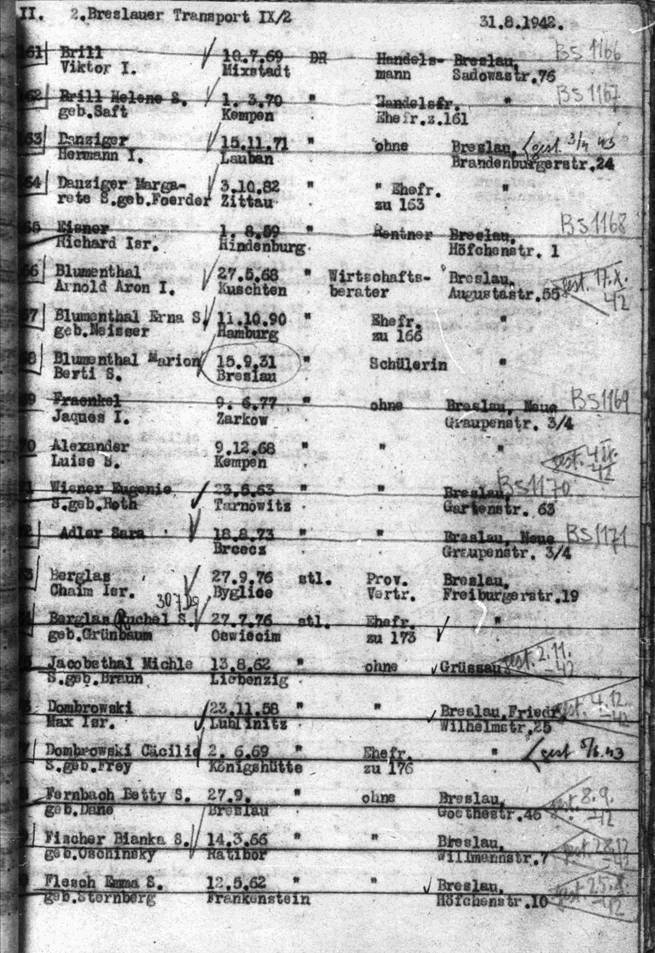 II. 2.Breslauer Transport IX/2 31.8.1942.
61 Brill 10.7.69 DR Handels- Breslau, BS1166
Viktor I. Mixstadt mann Sadowastr.76
62 Brill Helene S. 1. 3.70 " Handelsfr. " BS1167
geb.Saft Kempen Ehefr.z.161
63 Danziger 15.11.71 " ohne Breslau, gest. 3/4 43
Hermann I. Lauban Brandenburgerstr.24
64 Danziger Marga- 3.10.82 " " Ehefr. "
rete S.geb.Foerder Zittau zu 163
65 Eisner 1. 8.59 " Rentner Breslau, BS1168
Richard Isr. Hindenburg Höfchenstr. 1
66 Blumenthal 27.5.68 " Wirtschafts- Breslau, gest. 17.X.
Arnold Aron I. Kuschten berater Augustastr.55 42
67 Blumenthal Erna S. 11.10.90 " Ehefr. "
geb.Neisser Hamburg zu 166
68 Blumenthal Marion 15.9.31 " Schülerin "
Berti S. Breslau
69 Fraenkel 9. 6.77 " ohne Breslau, Neue BS1169
Jaques I. Zarkow Graupenstr. 3/4
70 Alexander 9.12.68 " " " gest.
Luise S. Kempen 42
Wiener Eugenie 23.6.63 " " Breslau, BS1170
S.geb.Roth Tarnowitz Gartenstr. 63
Adler Sara 18.8.73 " " Breslau, Neue BS1171
Brcecz Graupenstr. 3/4
3 Berglas 27.9.76 stl. Prov. Breslau,
Chaim Isr. Byglice Vertr. Freiburgerstr.19
Berglas Ruchel S. 27.7.76 stl. Ehefr. "
geb.Grünbaum Oswiecim zu 173
Jacobsthal Michle 13.8.62 " ohne Grüssau gest. 2.11.
S.geb.Braun Liebenzig 42
Dombrowski 23.11.58 " " Breslau,Friedr. gest. 4.12.
Max Isr. Lublinitz Wilhelmstr.25 -42
7 Dombrowski Cäcilie 2. 6.69 " Ehefr. " gest 5/6.43
S.geb.Frey Königshütte zu 176
Fernbach Betty S. 27.9. " ohne Breslau, gest. 8.9.
geb.Dane Breslau Goethestr.46 -42
Fischer Bianka S. 14.3.66 " " Breslau, gest. 28.12
geb.Oschinsky Ratibor Willmannstr.7 -42
Flesch Emma S. 12.5.62 " " Breslau, gest.
geb.Sternberg Frankenstein Höfchenstr.10 -42